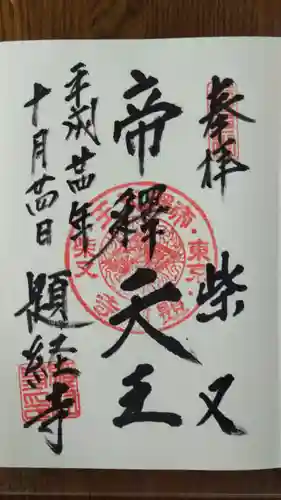 奉拝
柴又
帝釋天王
平成廿四年
十月廿四日
題経寺